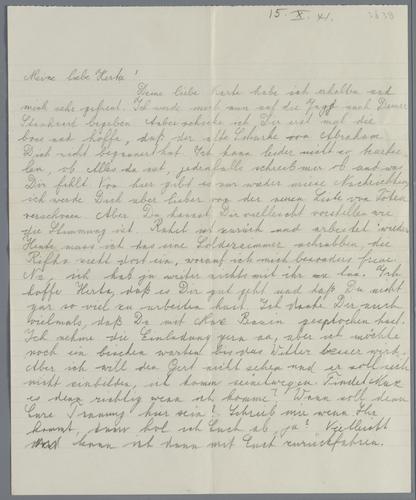 15. X. 41.
Meine liebe Herta!
Deine liebe Karte habe ich erhalten und
mich sehr gefreut. Ich werde mich nun auf die Jagd nach Deiner
begeben. schicke ich Dir erst mal die
und hoffe, daß der alte von Abraham
Dich nicht hat. Ich kann leider nicht
ob Alles da ist, jedenfalls schreib mir ob und was
Dir fehlt. Von hier gibt es nur wieder miese Nachrichten
ich werde Dich aber lieber von der neuen Liste von
verschonen. Aber Du kannst Dir vielleicht vorstellen wie
die Stimmung ist. Rahel ist zurück und arbeitet wieder
Heute muss ich das eine
Rifka zieht dort ein, worauf ich mich besonders freue.
Na, ich hab ja weiter nichts mit ihr zu tun. Ich
hoffe Herta, daß es Dir gut geht und daß Du nicht
gar so viel zu arbeiten hast. Ich danke Dir auch
vielmals, daß Du mit Max gesprochen hast.
Ich nehme die Einladung gern an, aber ich möchte
noch ein bischen warten bis das Wetter besser wird.
Aber ich will den Gert nicht sehen und er soll sich
nicht einbilden, ich komm seinetwegen. Findest Du
es denn richtig wenn ich komme? Wann soll denn
Eure Trauung hier sein? Schreib mir wenn Ihr
kommt, dann hol ich Euch ab, ja? Vielleicht
kann ich dann mit Euch zurückfahren.